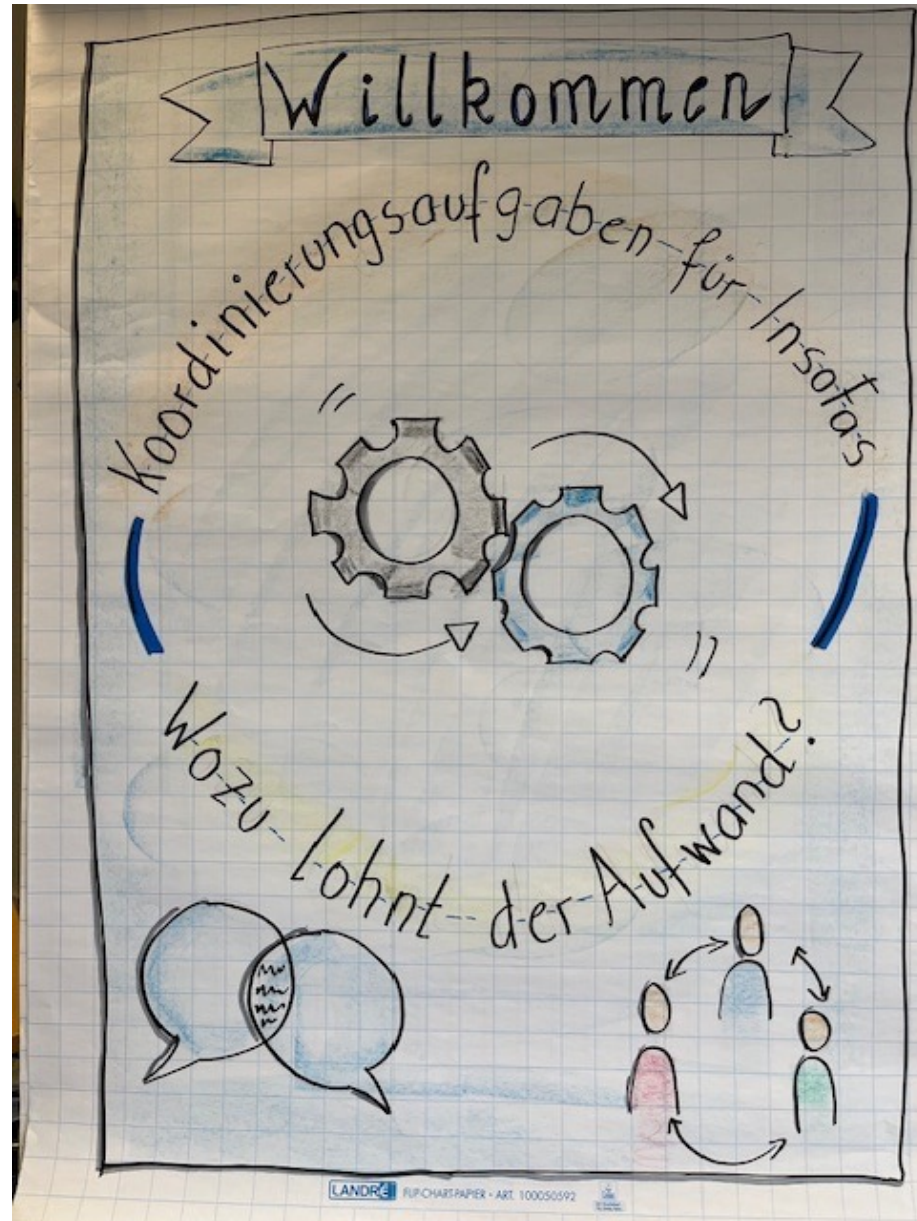 Willkommen
Koordinierungsaufgaben für Insofas
Wozu lohnt der Aufwand?
LANDRÉ FLIP-CHART-PAPIER • ART. 100050592